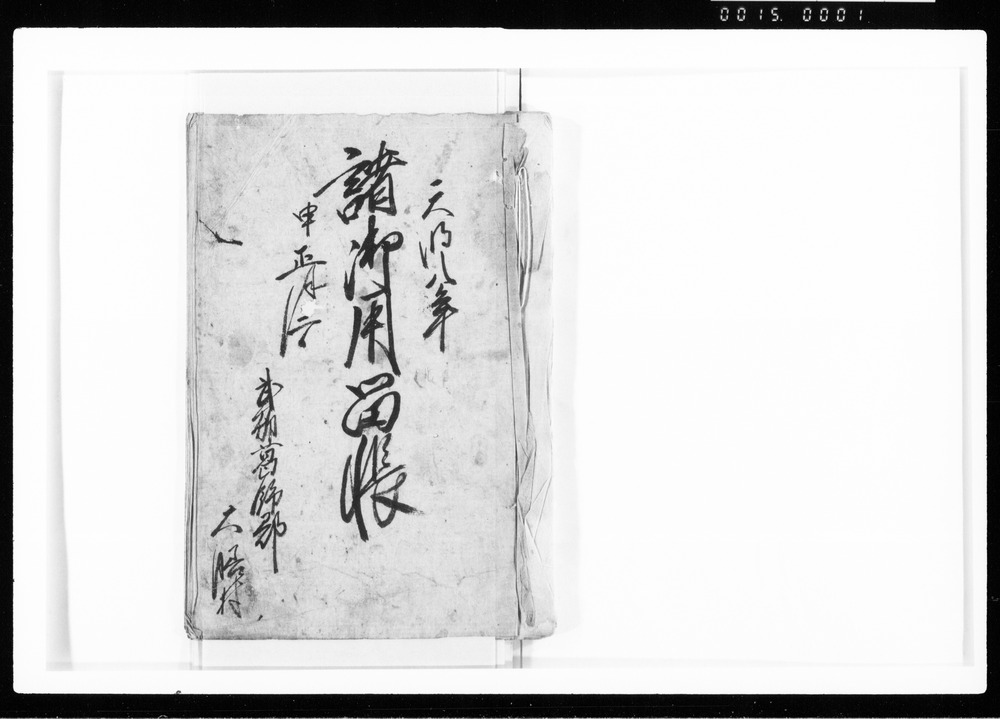 0015. 0001
天明八年
諸御用留帳
申正月日
武州葛飾郡
大膳村